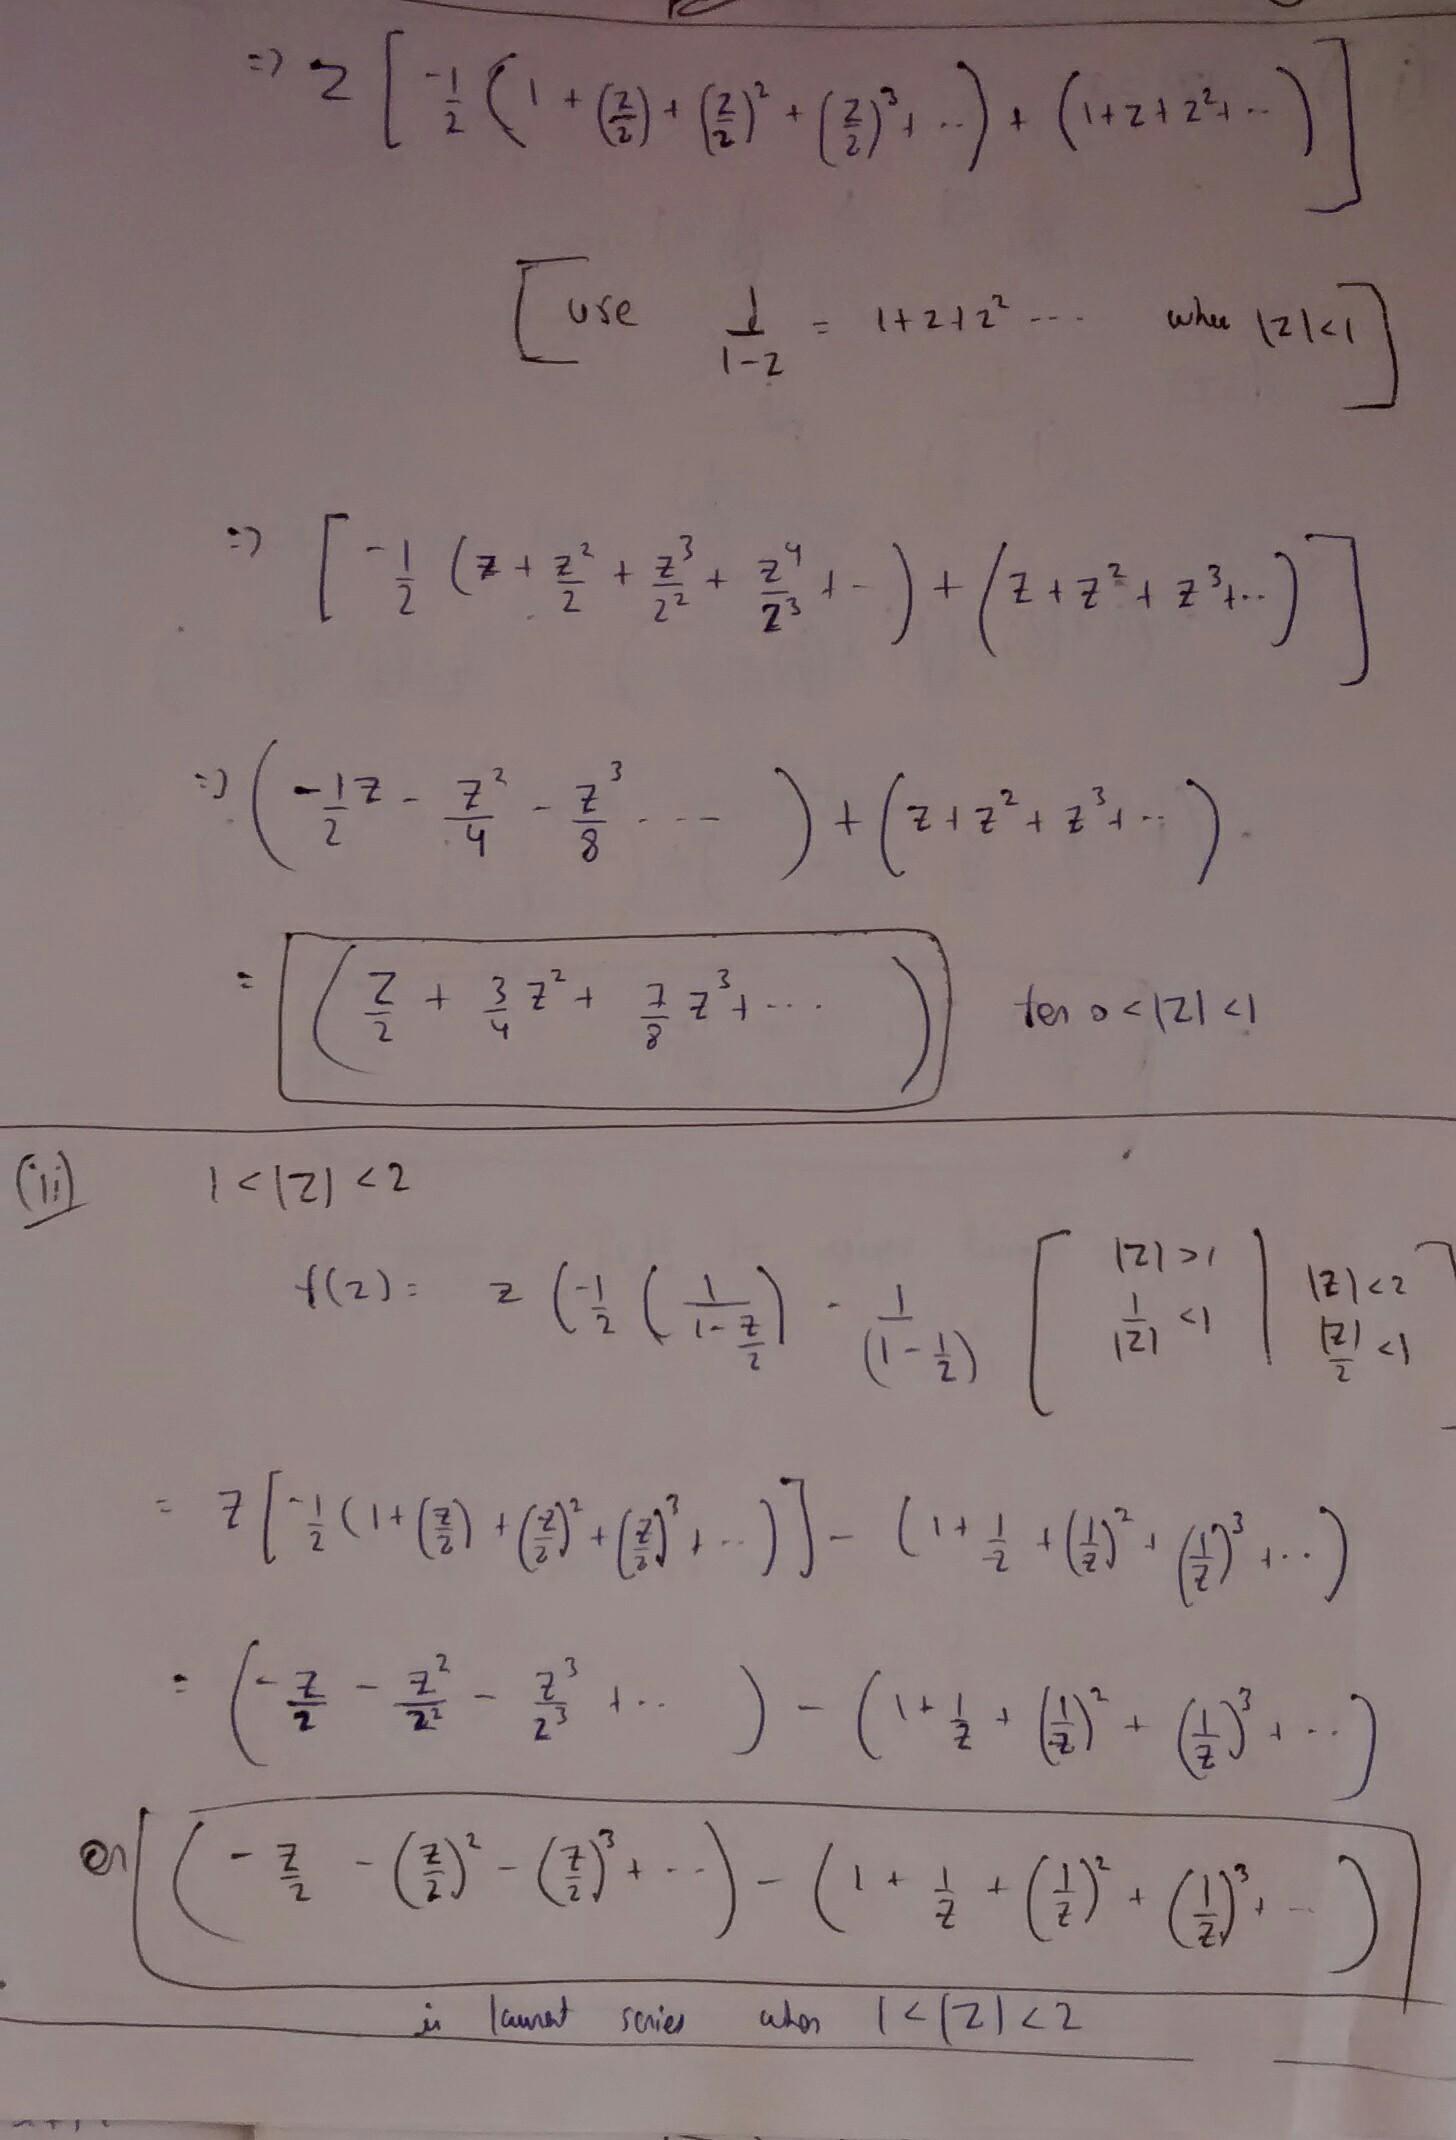 => z [ -1/2 ( 1 + (z/2) + (z/2)² + (z/2)³ + .. ) + ( 1+z+z²+ .. ) ]
[ use 1/(1-z) = 1+z+z² ... when |z|<1 ]
=> [ -1/2 ( z + z²/2 + z³/2² + z⁴/2³ + - ) + ( z + z² + z³+.. ) ]
=> ( -1/2 z - z²/4 - z³/8 ... ) + ( z + z² + z³ + .. )
= ( z/2 + 3/4 z² + 7/8 z³ + ... ) for 0<|z|<1
(ii) 1<|z|<2
f(z) = z ( -1/2 ( 1/(1-z/2) ) - 1/(1-1/z) [ |z|>1 1/|z| <1 | |z|<2 |z|/2 <1 ]
= z [ -1/2 ( 1+(z/2) + (z/2)² + (z/2)³ + .. ) ] - ( 1 + 1/z + (1/z)² + (1/z)³ + .. )
= ( -z/2 - z²/2² - z³/2³ + .. ) - ( 1 + 1/z + (1/z)² + (1/z)³ + .. )
or ( -z/2 - (z/2)² - (z/2)³ + ... ) - ( 1 + 1/z + (1/z)² + (1/z)³ + .. )
is laurent series when 1<|z|<2